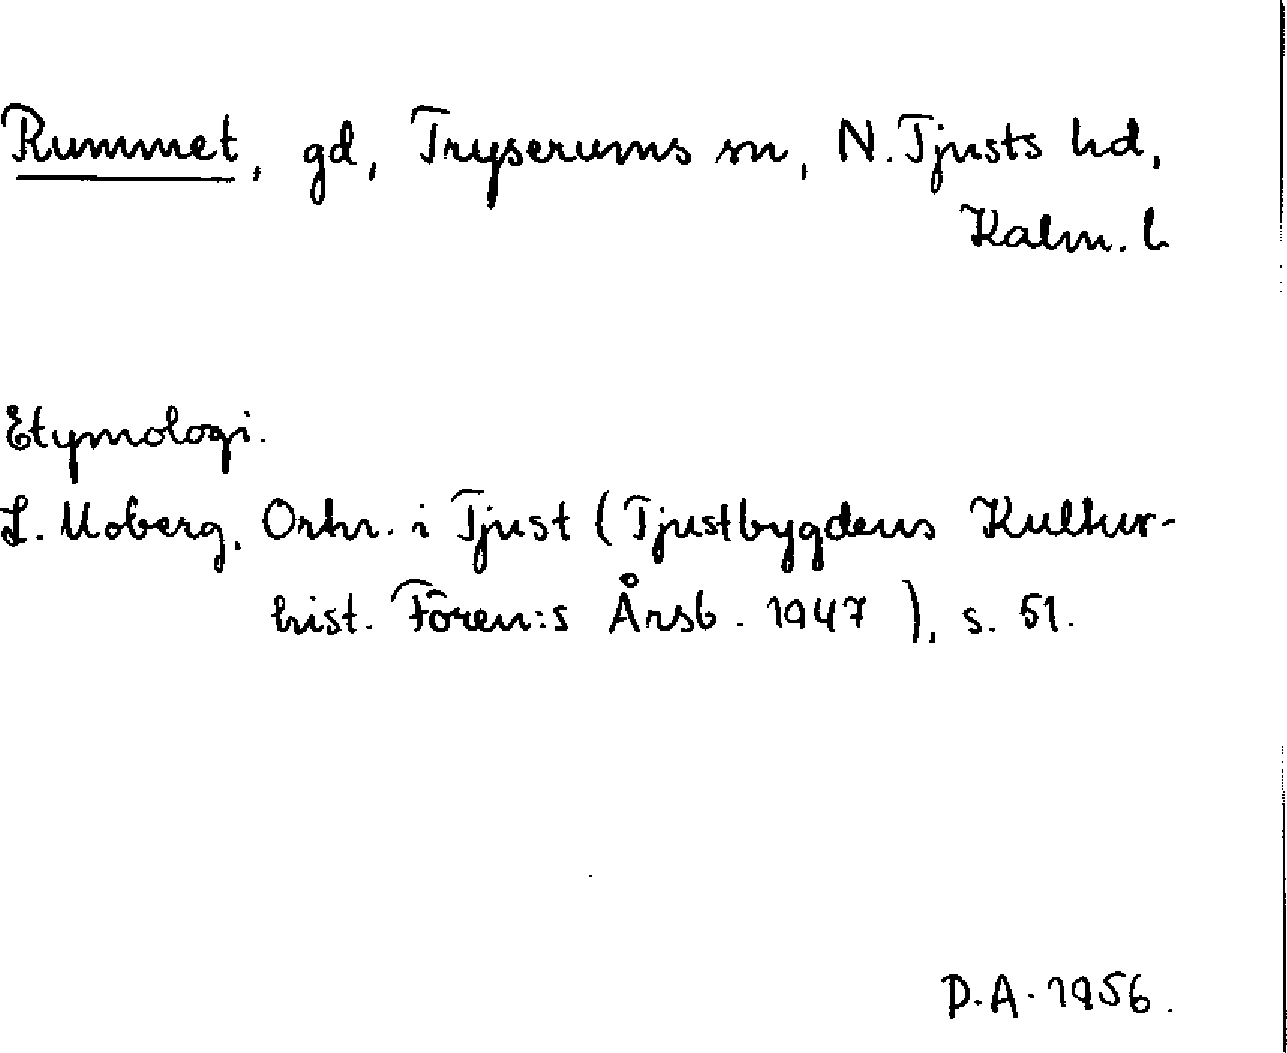 Rummet, gd, Tryserums sn, N. Tjusts hd,
Kalm. l.
Etymologi.
L. Moberg, Ortn. i Tjust (Tjustbygdens Kultur-
hist. Fören:s Årsb. 1947), s. 51.
D.A. 1956.